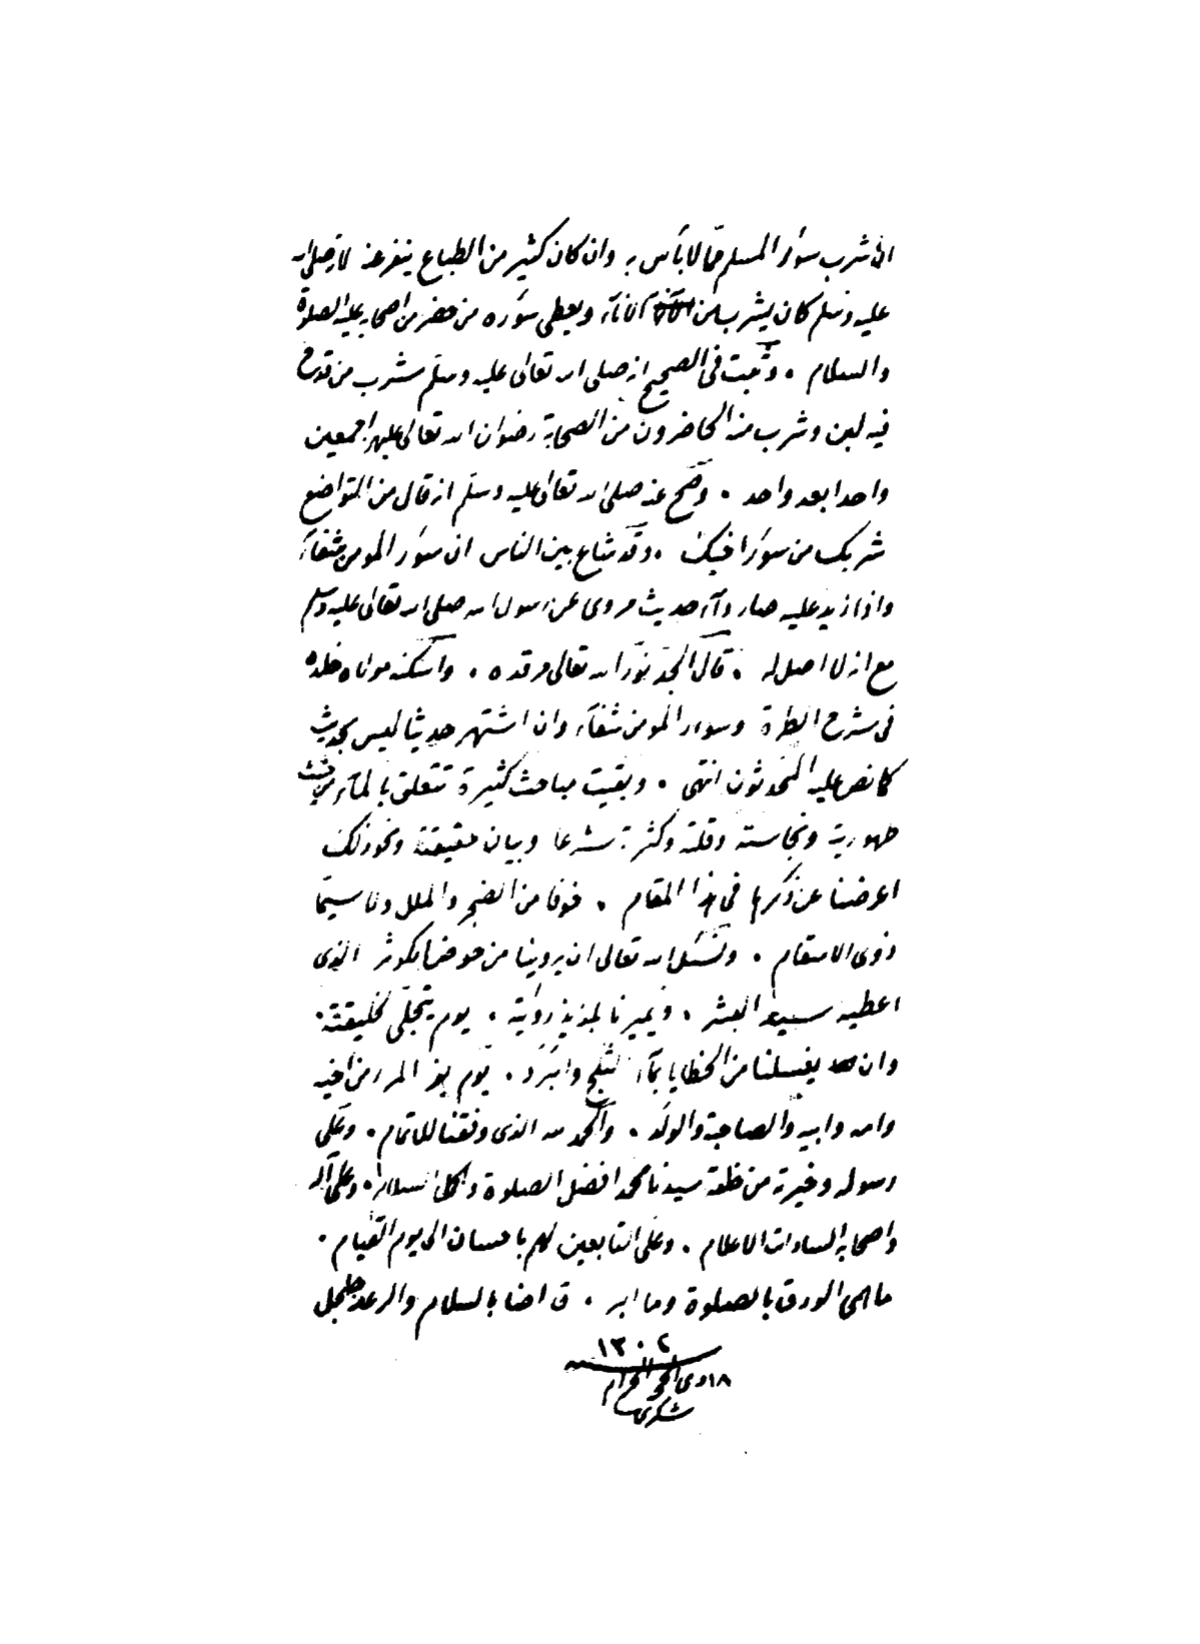 ان شرب سؤر المسلم مما لا بأس به وان كان كثير من الطباع ينفر عنه لانه صلى الله
عليه وسلم كان يشرب من الاناء ويعطى سؤره من حضر من اصحابه عليه الصلوة
والسلام . وثبت فى الصحيح انه صلى الله تعالى عليه وسلم شرب من قدح
فيه لبن وشرب منه الحاضرون من الصحابة رضوان الله تعالى عليهم اجمعين
واحدا بعد واحد . وصح عنه صلى الله تعالى عليه وسلم انه قال من التواضع
شربك من سؤر اخيك . وقد شاع بين الناس ان سؤر المومن شفاء
واذا زيد عليه صار داء حديث مروى عن رسول الله صلى الله تعالى عليه وسلم
مع انه لا اصل له . قال الجد نور الله تعالى مرقده . واسكنه مولاه خلده
فى شرح الطرة وسؤر المومن شفاء وان اشتهر حديثا ليس بحديث
كما نص عليه المحدثون انتهى . وبقيت مباحث كثيرة تتعلق بالماء من حيث
طهوريته ونجاسته وقلته وكثرته شرعا وبيان حقيقته ونحو ذلك
اعرضنا عن ذكرها فى هذا المقام . خوفا من الضجر والملل ولا سيما
ذوى الاسقام . ونسئل الله تعالى ان يروينا من حوض الكوثر الذى
اعطيه سيد البشر . ويميرنا لذيذ رؤيته . يوم يتجلى لخليقته .
وان يغسلنا من الخطايا بماء الثلج والبرد . يوم يفر المرء من اخيه
وامه وابيه والصاحبة والولد . والحمد لله الذى وفقنا للاتمام . وعلى
رسوله وخيرته من خلقه سيدنا محمد افضل الصلوة واكمل السلام . وعلى آله
واصحابه السادات الاعلام . وعلى التابعين لهم باحسان الى يوم القيام .
ما همى الودق بالصلوة وما ابر . ق اضا بالسلام والرعد جلجل
١٣٠٢
١٨ ذى الحجة الحرام
شكرى